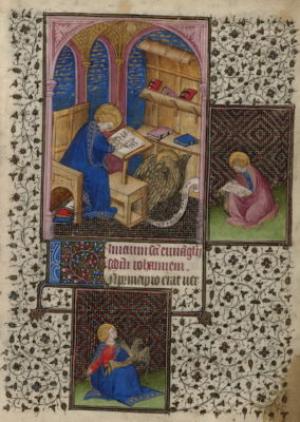 Initium sci euuangelii
scdm iohannem.
In principio erat ver